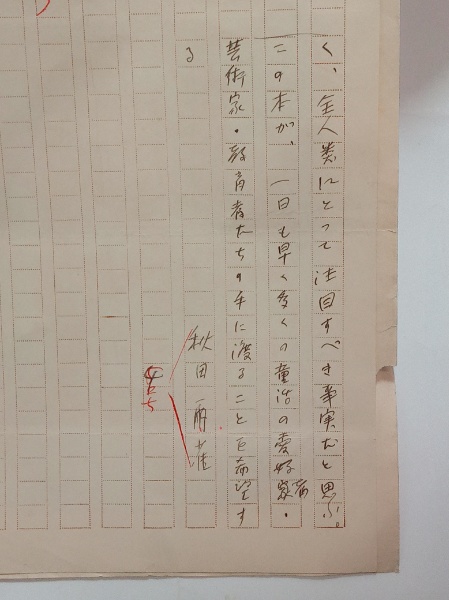 く、全人類にとって注目すべき事実だと思ふ。
この本が、一日も早く多くの童話の愛好家・
芸術家・教育者たちの手に渡ることを希望す
る
秋田雨雀